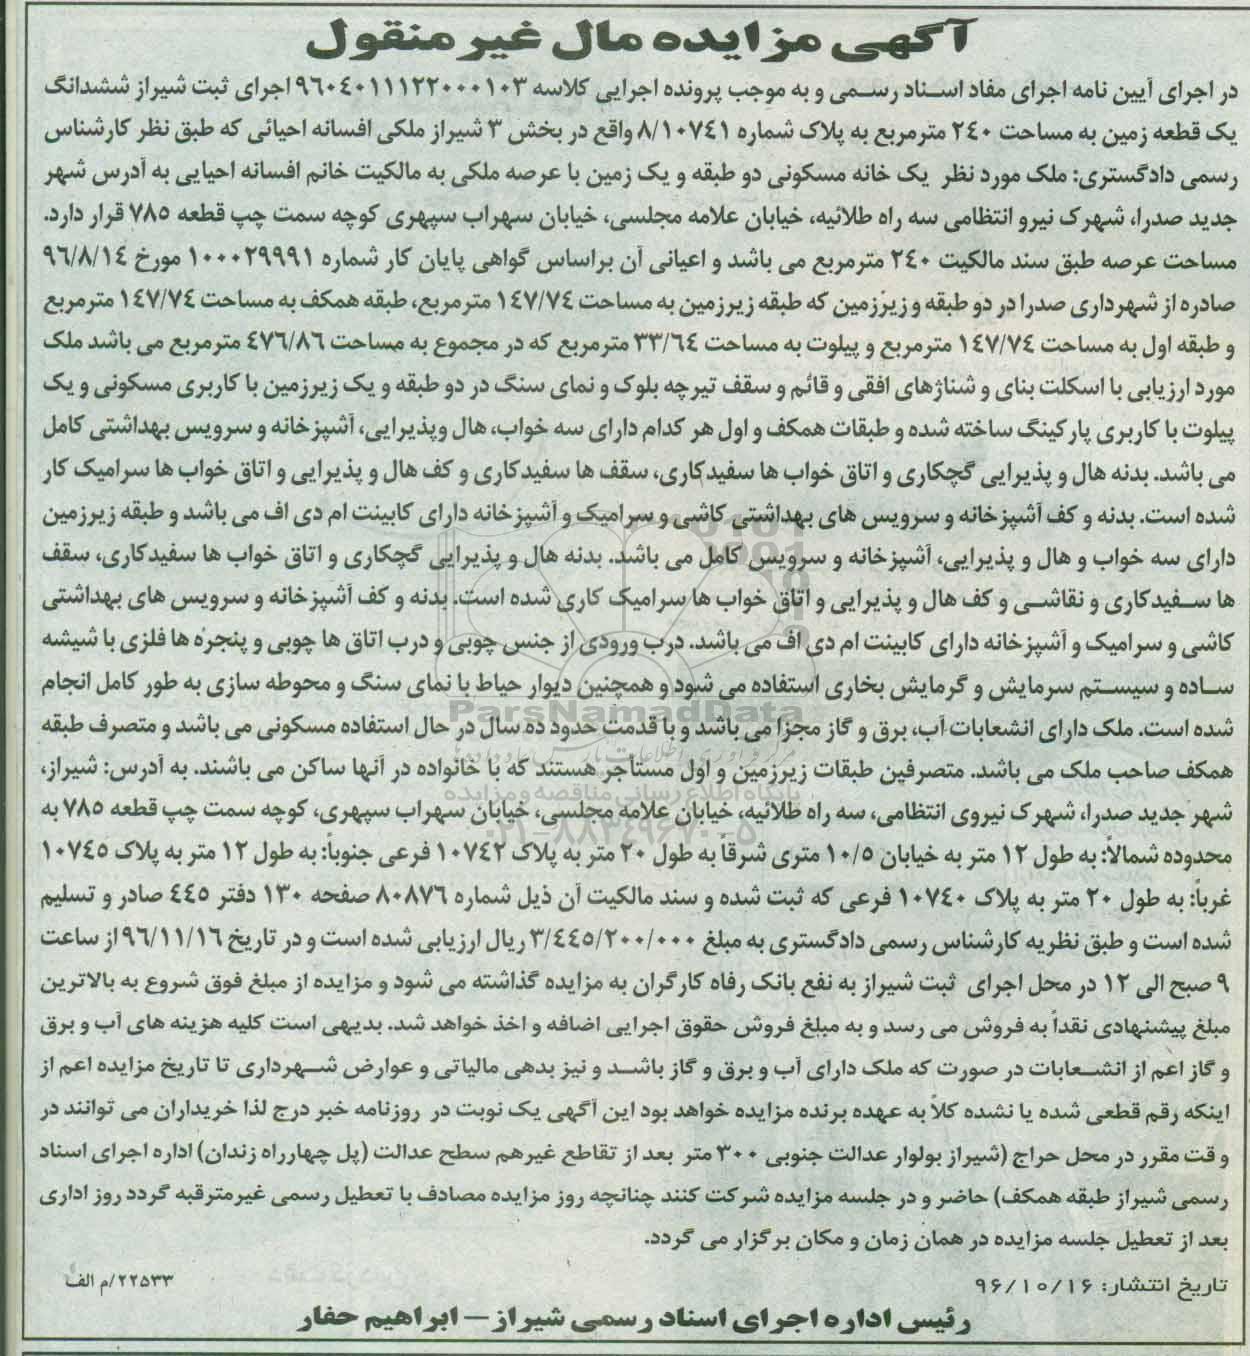 آگهی مزایده مال غیر منقول
در اجرای آیین نامه اجرای مفاد اسناد رسمی و به موجب پرونده اجرایی کلاسه ۹۶۰۴۰۱۱۱۲۲۰۰۰۱۰۳ اجرای ثبت شیراز ششدانگ
یک قطعه زمین به مساحت ۲۴۰ مترمربع به پلاک شماره ۸/۱۰۷۴۱ واقع در بخش ۳ شیراز ملکی افسانه احیائی که طبق نظر کارشناس
رسمی دادگستری: ملک مورد نظر یک خانه مسکونی دو طبقه و یک زمین با عرصه ملکی به مالکیت خانم افسانه احیایی به آدرس شهر
جدید صدرا، شهرک نیرو انتظامی سه راه طلائیه، خیابان علامه مجلسی، خیابان سهراب سپهری کوچه سمت چپ قطعه ۷۸۵ قرار دارد.
مساحت عرصه طبق سند مالکیت ۲۴۰ مترمربع می باشد و اعیانی آن براساس گواهی پایان کار شماره ۱۰۰۰۲۹۹۹۱ مورخ ۹۶/۸/۱۴
صادره از شهرداری صدرا در دو طبقه و زیرزمین که طبقه زیرزمین به مساحت ۱۴۷/۷۴ مترمربع، طبقه همکف به مساحت ۱۴۷/۷۴ مترمربع
و طبقه اول به مساحت ۱۴۷/۷۴ مترمربع و پیلوت به مساحت ۳۳/۶۴ مترمربع که در مجموع به مساحت ۴۷۶/۸۶ مترمربع می باشد ملک
مورد ارزیابی با اسکلت بنای و شناژهای افقی و قائم و سقف تیرچه بلوک و نمای سنگ در دو طبقه و یک زیرزمین با کاربری مسکونی و یک
پیلوت با کاربری پارکینگ ساخته شده و طبقات همکف و اول هر کدام دارای سه خواب، هال وپذیرایی، آشپزخانه و سرویس بهداشتی کامل
می باشد. بدنه هال و پذیرایی گچکاری و اتاق خواب ها سفیدکاری، سقف ها سفیدکاری و کف هال و پذیرایی و اتاق خواب ها سرامیک کار
شده است. بدنه و کف آشپزخانه و سرویس های بهداشتی کاشی و سرامیک و آشپزخانه دارای کابینت ام دی اف می باشد و طبقه زیرزمین
دارای سه خواب و هال و پذیرایی، آشپزخانه و سرویس کامل می باشد. بدنه هال و پذیرایی گچکاری و اتاق خواب ها سفیدکاری، سقف
ها سفیدکاری و نقاشی و کف هال و پذیرایی و اتاق خواب ها سرامیک کاری شده است. بدنه و کف آشپزخانه و سرویس های بهداشتی
کاشی و سرامیک و آشپزخانه دارای کابینت ام دی اف می باشد. درب ورودی از جنس چوبی و درب اتاق ها چوبی و پنجره ها فلزی با شیشه
ساده و سیستم سرمایش و گرمایش بخاری استفاده می شود و همچنین دیوار حیاط با نمای سنگ و محوطه سازی به طور کامل انجام
شده است. ملک دارای انشعابات آب، برق و گاز مجزا می باشد و با قدمت حدود ده سال در حال استفاده مسکونی می باشد و متصرف طبقه
همکف صاحب ملک می باشد. متصرفین طبقات زیرزمین و اول مستأجر هستند که با خانواده در آنها ساکن می باشند. به آدرس: شیراز،
شهر جدید صدرا، شهرک نیروی انتظامی، سه راه طلائیه، خیابان علامه مجلسی، خیابان سهراب سپهری، کوچه سمت چپ قطعه ۷۸۵ به
محدوده شمالاً: به طول ۱۲ متر به خیابان ۱۰/۵ متری شرقاً به طول ۲۰ متر به پلاک ۱۰۷۴۲ فرعی جنوباً: به طول ۱۲ متر به پلاک ۱۰۷۴۵
غرباً: به طول ۲۰ متر به پلاک ۱۰۷۴۰ فرعی که ثبت شده و سند مالکیت آن ذیل شماره ۸۰۸۷۶ صفحه ۱۳۰ دفتر ۴۴۵ صادر و تسلیم
شده است و طبق نظریه کارشناس رسمی دادگستری به مبلغ ۳/۴۴۵/۲۰۰/۰۰۰ ریال ارزیابی شده است و در تاریخ ۹۶/۱۱/۱۶ از ساعت
۹ صبح الی ۱۲ در محل اجرای ثبت شیراز به نفع بانک رفاه کارگران به مزایده گذاشته می شود و مزایده از مبلغ فوق شروع به بالاترین
مبلغ پیشنهادی نقداً به فروش می رسد و به مبلغ فروش حقوق اجرایی اضافه و اخذ خواهد شد. بدیهی است کلیه هزینه های آب و برق
و گاز اعم از انشعابات در صورت که ملک دارای آب و برق و گاز باشد و نیز بدهی مالیاتی و عوارض شهرداری تا تاریخ مزایده اعم از
اینکه رقم قطعی شده یا نشده کلاً به عهده برنده مزایده خواهد بود این آگهی یک نوبت در روزنامه خبر درج لذا خریداران می توانند در
وقت مقرر در محل حراج (شیراز بولوار عدالت جنوبی ۳۰۰ متر بعد از تقاطع غیرهم سطح عدالت (پل چهارراه زندان) اداره اجرای اسناد
رسمی شیراز طبقه همکف) حاضر و در جلسه مزایده شرکت کنند چنانچه روز مزایده مصادف با تعطیل رسمی غیرمترقبه گردد روز اداری
بعد از تعطیل جلسه مزایده در همان زمان و مکان برگزار می گردد.
تاریخ انتشار: ۹۶/۱۰/۱۶
۲۲۵۳۳/م الف
رئیس اداره اجرای اسناد رسمی شیراز – ابراهیم حفار
ParsNamadData
پایگاه اطلاع رسانی مناقصه و مزایده
۰۲۱-۸۸۳۴۹۶۷۰-۵